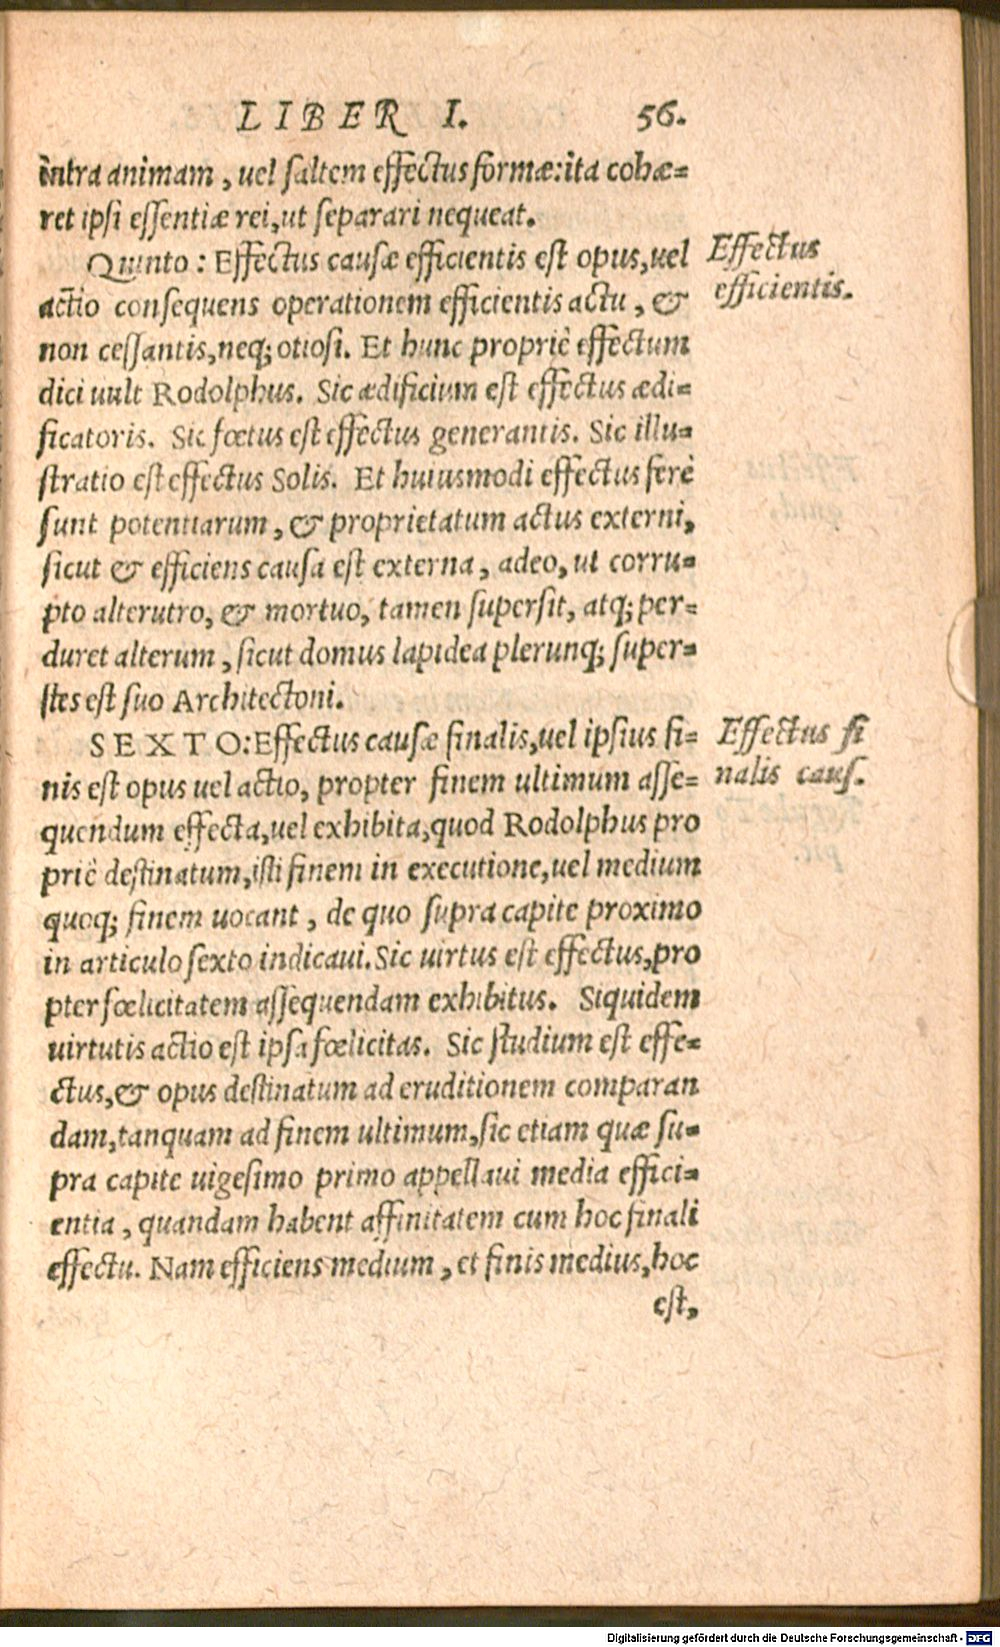 LIBER I. 56.
intra animam, uel ſaltem effectus formæ: ita cohæ=
ret ipſi eſſentiæ rei, ut ſeparari nequeat.
Quinto: Effectus cauſæ efficientis eſt opus, uel
actio conſequens operationem efficientis actu, &
non ceſſantis, neq; otioſi. Et hunc propriè effectum
dici uult Rodolphus. Sic ædificium eſt effectus ædi=
ficatoris. Sic fœtus eſt effectus generantis. Sic illu=
ſtratio eſt effectus Solis. Et huiusmodi effectus ferè
ſunt potentiarum, & proprietatum actus externi,
ſicut & efficiens cauſa eſt externa, adeo, ut corru=
pto alterutro, & mortuo, tamen ſuperſit, atq; per=
duret alterum, ſicut domus lapidea plerunq; ſuper=
ſtes eſt ſuo Architectoni.
Effectus
efficientis.
SEXTO: Effectus cauſæ finalis, uel ipſius fi=
nis eſt opus uel actio, propter finem ultimum aſſe=
quendum effecta, uel exhibita, quod Rodolphus pro
priè deſtinatum, iſti finem in executione, uel medium
quoq; finem uocant, de quo ſupra capite proximo
in articulo ſexto indicaui. Sic uirtus eſt effectus, pro
pter fœlicitatem aſſequendam exhibitus. Siquidem
uirtutis actio eſt ipſa fœlicitas. Sic ſtudium eſt effe=
ctus, & opus deſtinatum ad eruditionem comparan
dam, tanquam ad finem ultimum, ſic etiam quæ ſu=
pra capite uigeſimo primo appellaui media effici=
entia, quandam habent affinitatem cum hoc finali
effectu. Nam efficiens medium, et finis medius, hoc
eſt,
Effectus fi
nalis cauſ.
Digitalisierung gefördert durch die Deutsche Forschungsgemeinschaft - DFG